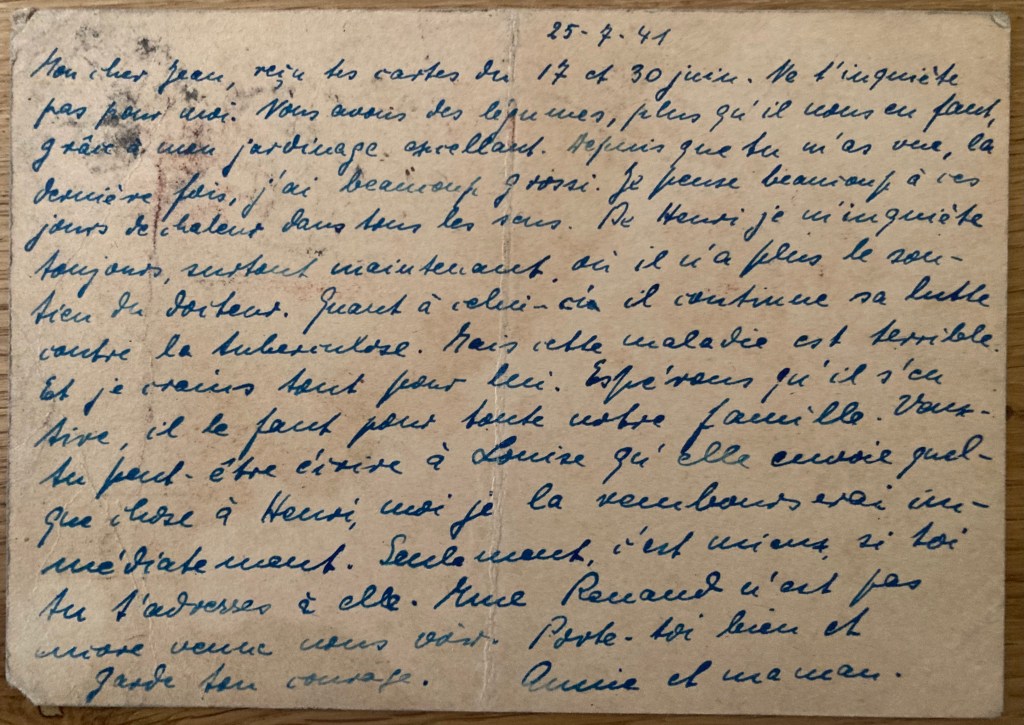 25-7-41
Mon cher Jean, reçu tes cartes du 17 et 30 juin. Ne t'inquiète
pas pour moi. Nous avons des légumes, plus qu'il nous en faut,
grâce à mon jardinage excellant. Depuis que tu m'as vue, la
dernière fois, j'ai beaucoup grossi. Je pense beaucoup à ces
jours de chaleur dans tous les sens. De Henri je m'inquiète
toujours, surtout maintenant, où il n'a plus le sou-
tien du docteur. Quant à celui-ci il continue sa lutte
contre la tuberculose. Mais cette maladie est terrible.
Et je crains tout pour lui. Espérons qu'il s'en
tire, il le faut pour toute notre famille. Veux-
tu peut-être écrire à Louise qu'elle envoie quel-
que chose à Henri, moi je la rembourserai im-
médiatement. Seulement, c'est mieux, si toi
tu t'adresses à elle. Mme Renaud n'est pas
encore venue nous voir. Porte-toi bien et
garde ton courage. Annie et maman.